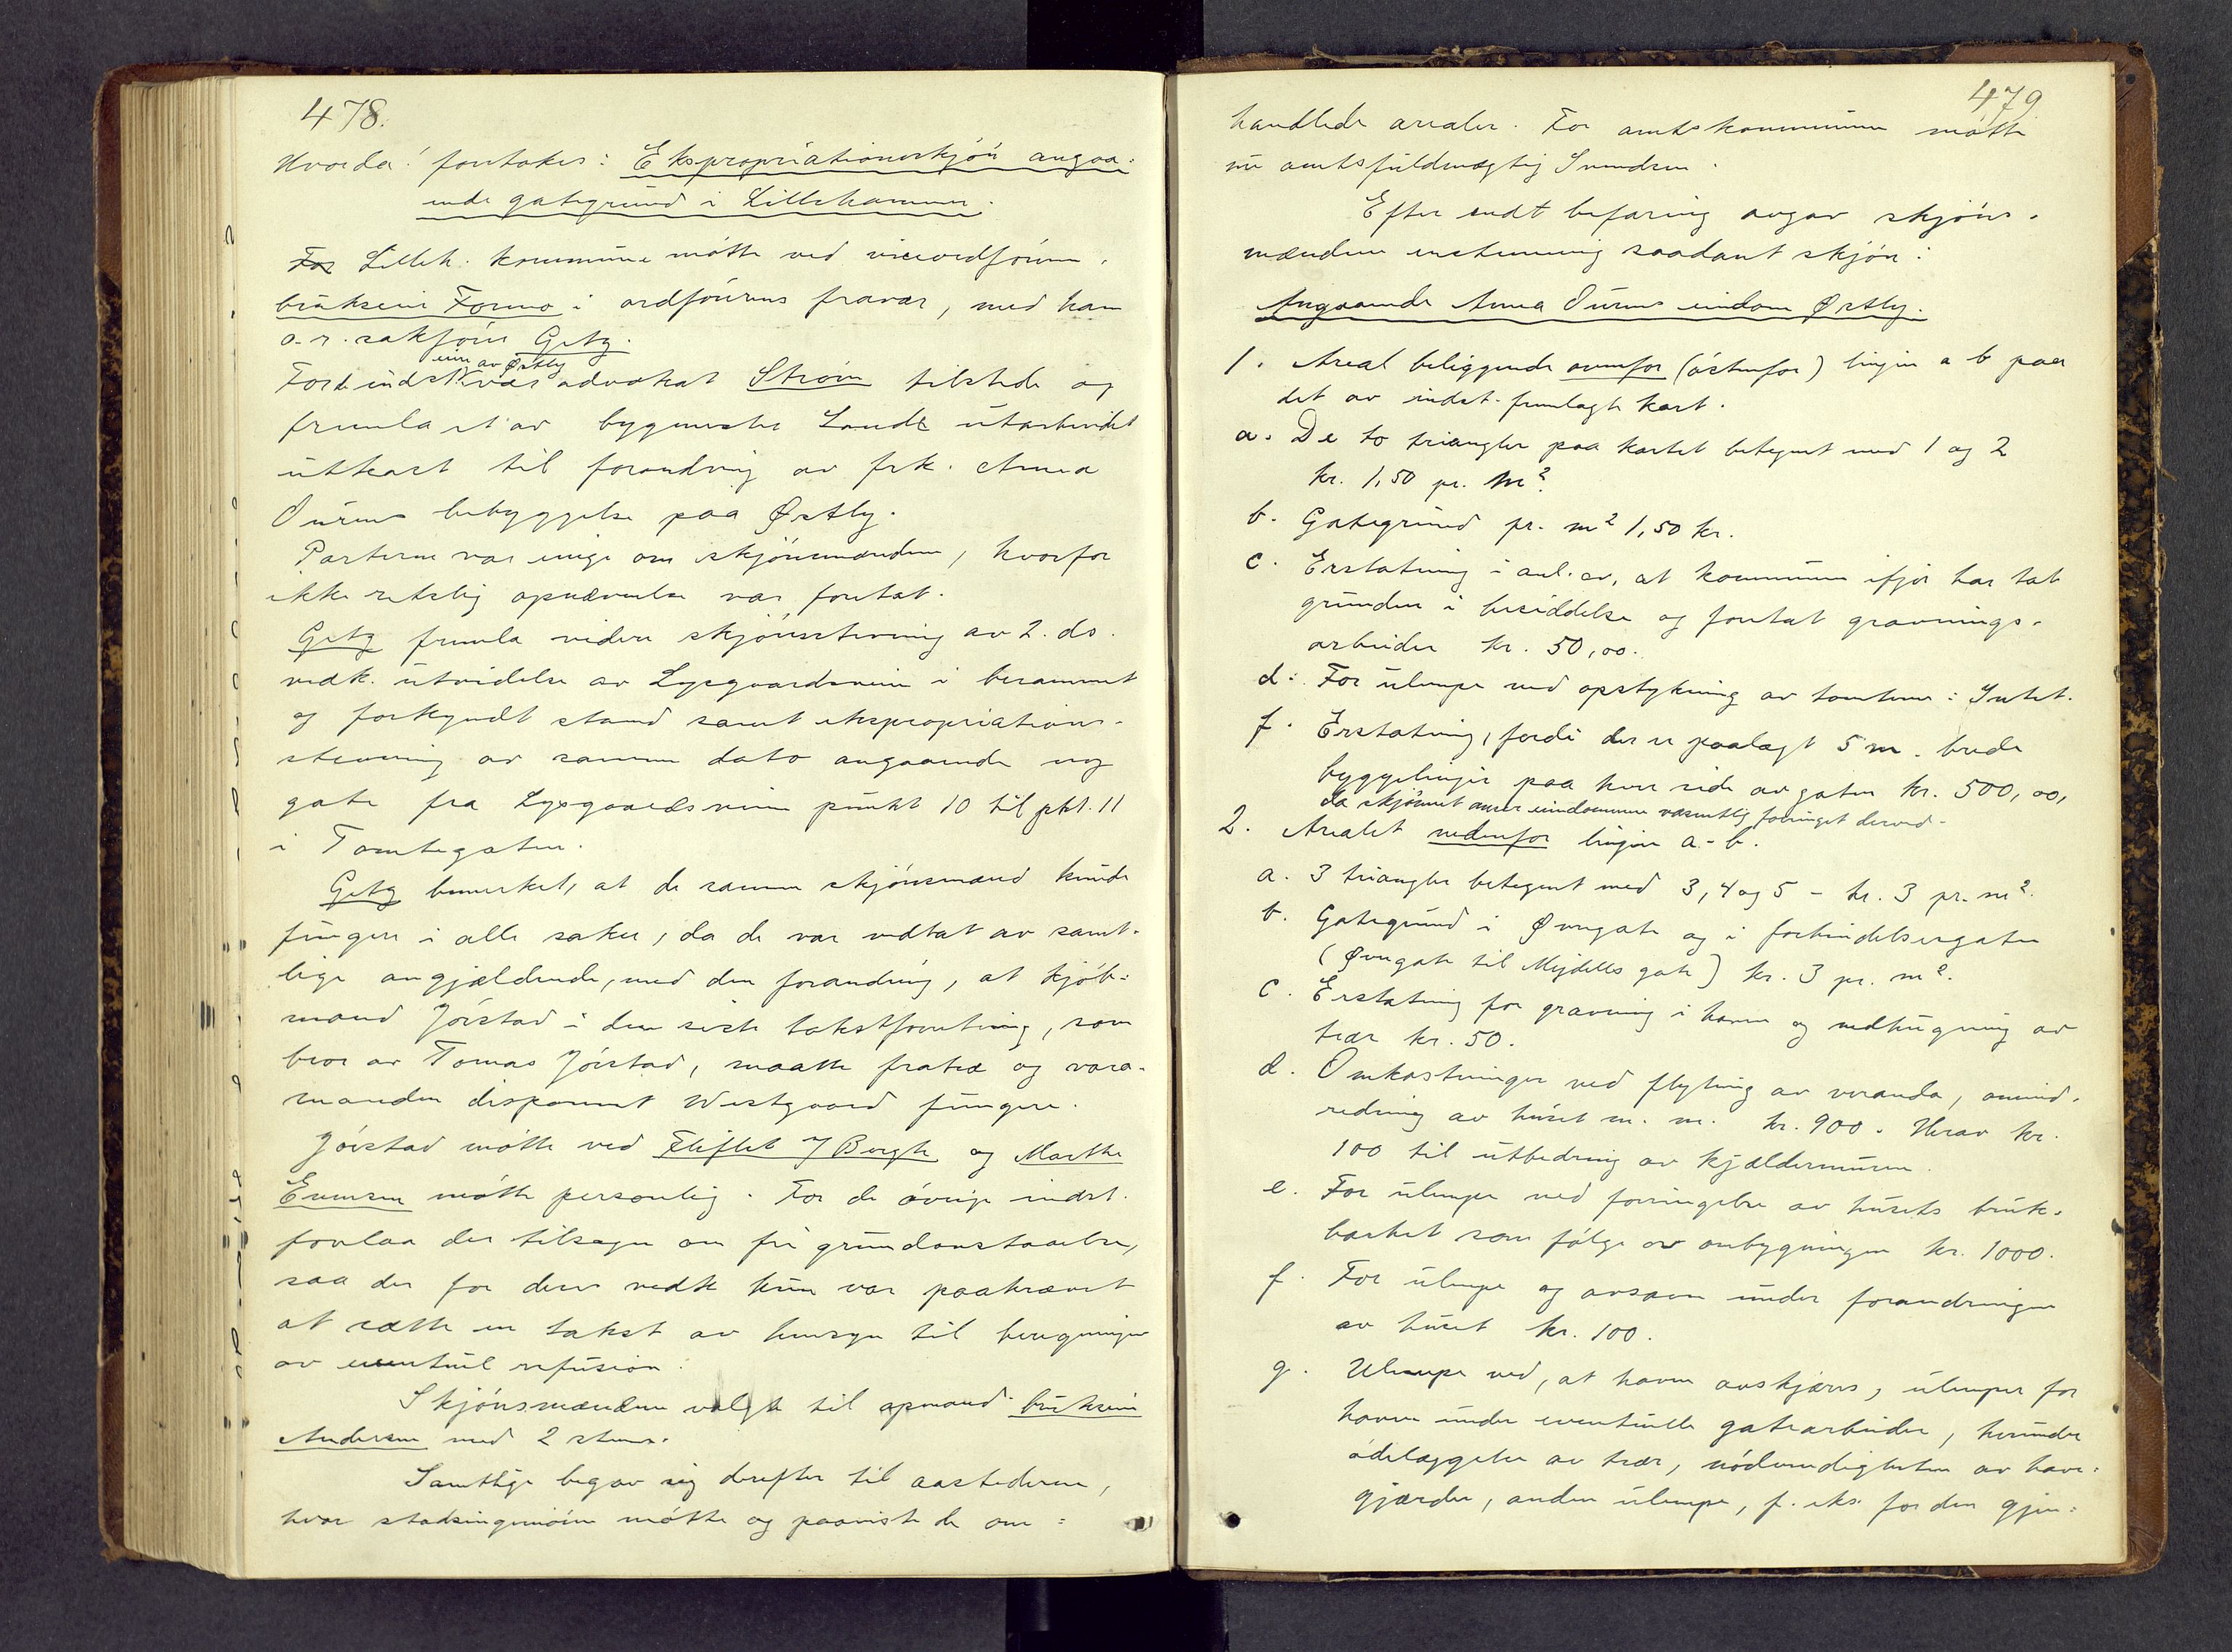 478.
Hvorda! foretokes: Ekspropriationsskjøn angaa-
ende gategrund i Lillehammer.
For Lilleh. kommune møtte ved viceordfører,
brukseier Formo i ordførerens fravær, med ham
o.r.sakfører Getz.
eien av Østby
For de indst. var advokat Strøm tilstede og
fremla et av bygmester Lande utarbeidet
utkast til forandring av frk. Anna
Durens bebyggelse paa Østby.
Parterne var enige om skjønsmændene, hvorfor
ikke retslig opnævnelse var foretat.
Getz fremla videre skjønsstevning av 2. ds.
vedk. utvidelse av Lysgaardsveien i berammet
og forkyndt stand samt ekspropriations-
stevning av samme dato angaaende ny
gate fra Lysgaardsveien punkt 10 til pkt. 11
i Tomtegaten.
Getz bemerket, at de samme skjønsmænd kunde
fungere i alle saker, da de var vedtat av samt-
lige angjældende, med den forandring, at kjøb-
mand Jørstad i den siste takstforretning, som
bror av Tomas Jørstad, maatte fratræ og vara-
manden disponent Westgaard fungere.
Jørstad møtte ved Fliflet & Bergh og Marthe
Evensen møtte personlig. For de øvrige indst.
forelaa der tilsagn om fri grundavstaaelse,
saa der for deres vedk kun var paakrævet
at sætte en takst av hensyn til beregningen
av eventuel refusion.
Skjønsmændene valgte til opmand brukseier
Andersen med 2 stemr.
Samtlige begav sig derefter til aastederne,
hvor stadsingeniøren møtte og paaviste de om-
479
handlede arealer. For amtskommunen møtte
nu amtsfuldmægtig Svendsen.
Efter endt befaring avgav skjøns-
mændene enstemmig saadant skjøn:
Angaaende Anna Durens eiendom Østby.
1. Areal beliggende ovenfor (østenfor) linjen a b paa
det av indst. fremlagte kart.
a. De to triangler paa kartet betegnet med 1 og 2
kr. 1,50 pr. m².
b. Gategrund pr. m² 1,50 kr.
c. Erstatning i anl. av, at kommunen ifjor har tat
grunden i besiddelse og foretat gravnings-
arbeider kr. 50,00.
d. For ulempe ved opstykning av tomtene: Intet.
f. Erstatning, fordi der er paalagt 5 m. brede
byggelinjer paa hver side av gaten kr. 500,00,
da skjønnet anser eiendommen væsentlig forringet derved.
2. Arealet nedenfor linjen a-b.
a. 3 triangler betegnet med 3, 4 og 5 - kr. 3 pr. m².
b. Gategrund i Øvregate og i forbindelsesgaten
(Øvregate til Mejdells gate) kr. 3 pr. m².
c. Erstatning for gravning i haven og nedhugning av
trær kr. 50.
d. Omkostninger ved flytning av veranda, omind-
redning av huset m. m. kr. 900. Herav kr.
100 til utbedring av kjældermuren.
e. For ulemper ved forringelse av husets bruk-
barhet som følge av ombygningen kr. 1000.
f. For ulempe og avsavn under forandringen
av huset kr. 100.
g. Ulempe ved, at haven avskjæres, ulemper for
haven under eventuelle gatearbeider, herunder
ødelæggelse av trær, nødvendigheten av have-
gjærder, anden ulempe, f. eks. for den gjen-